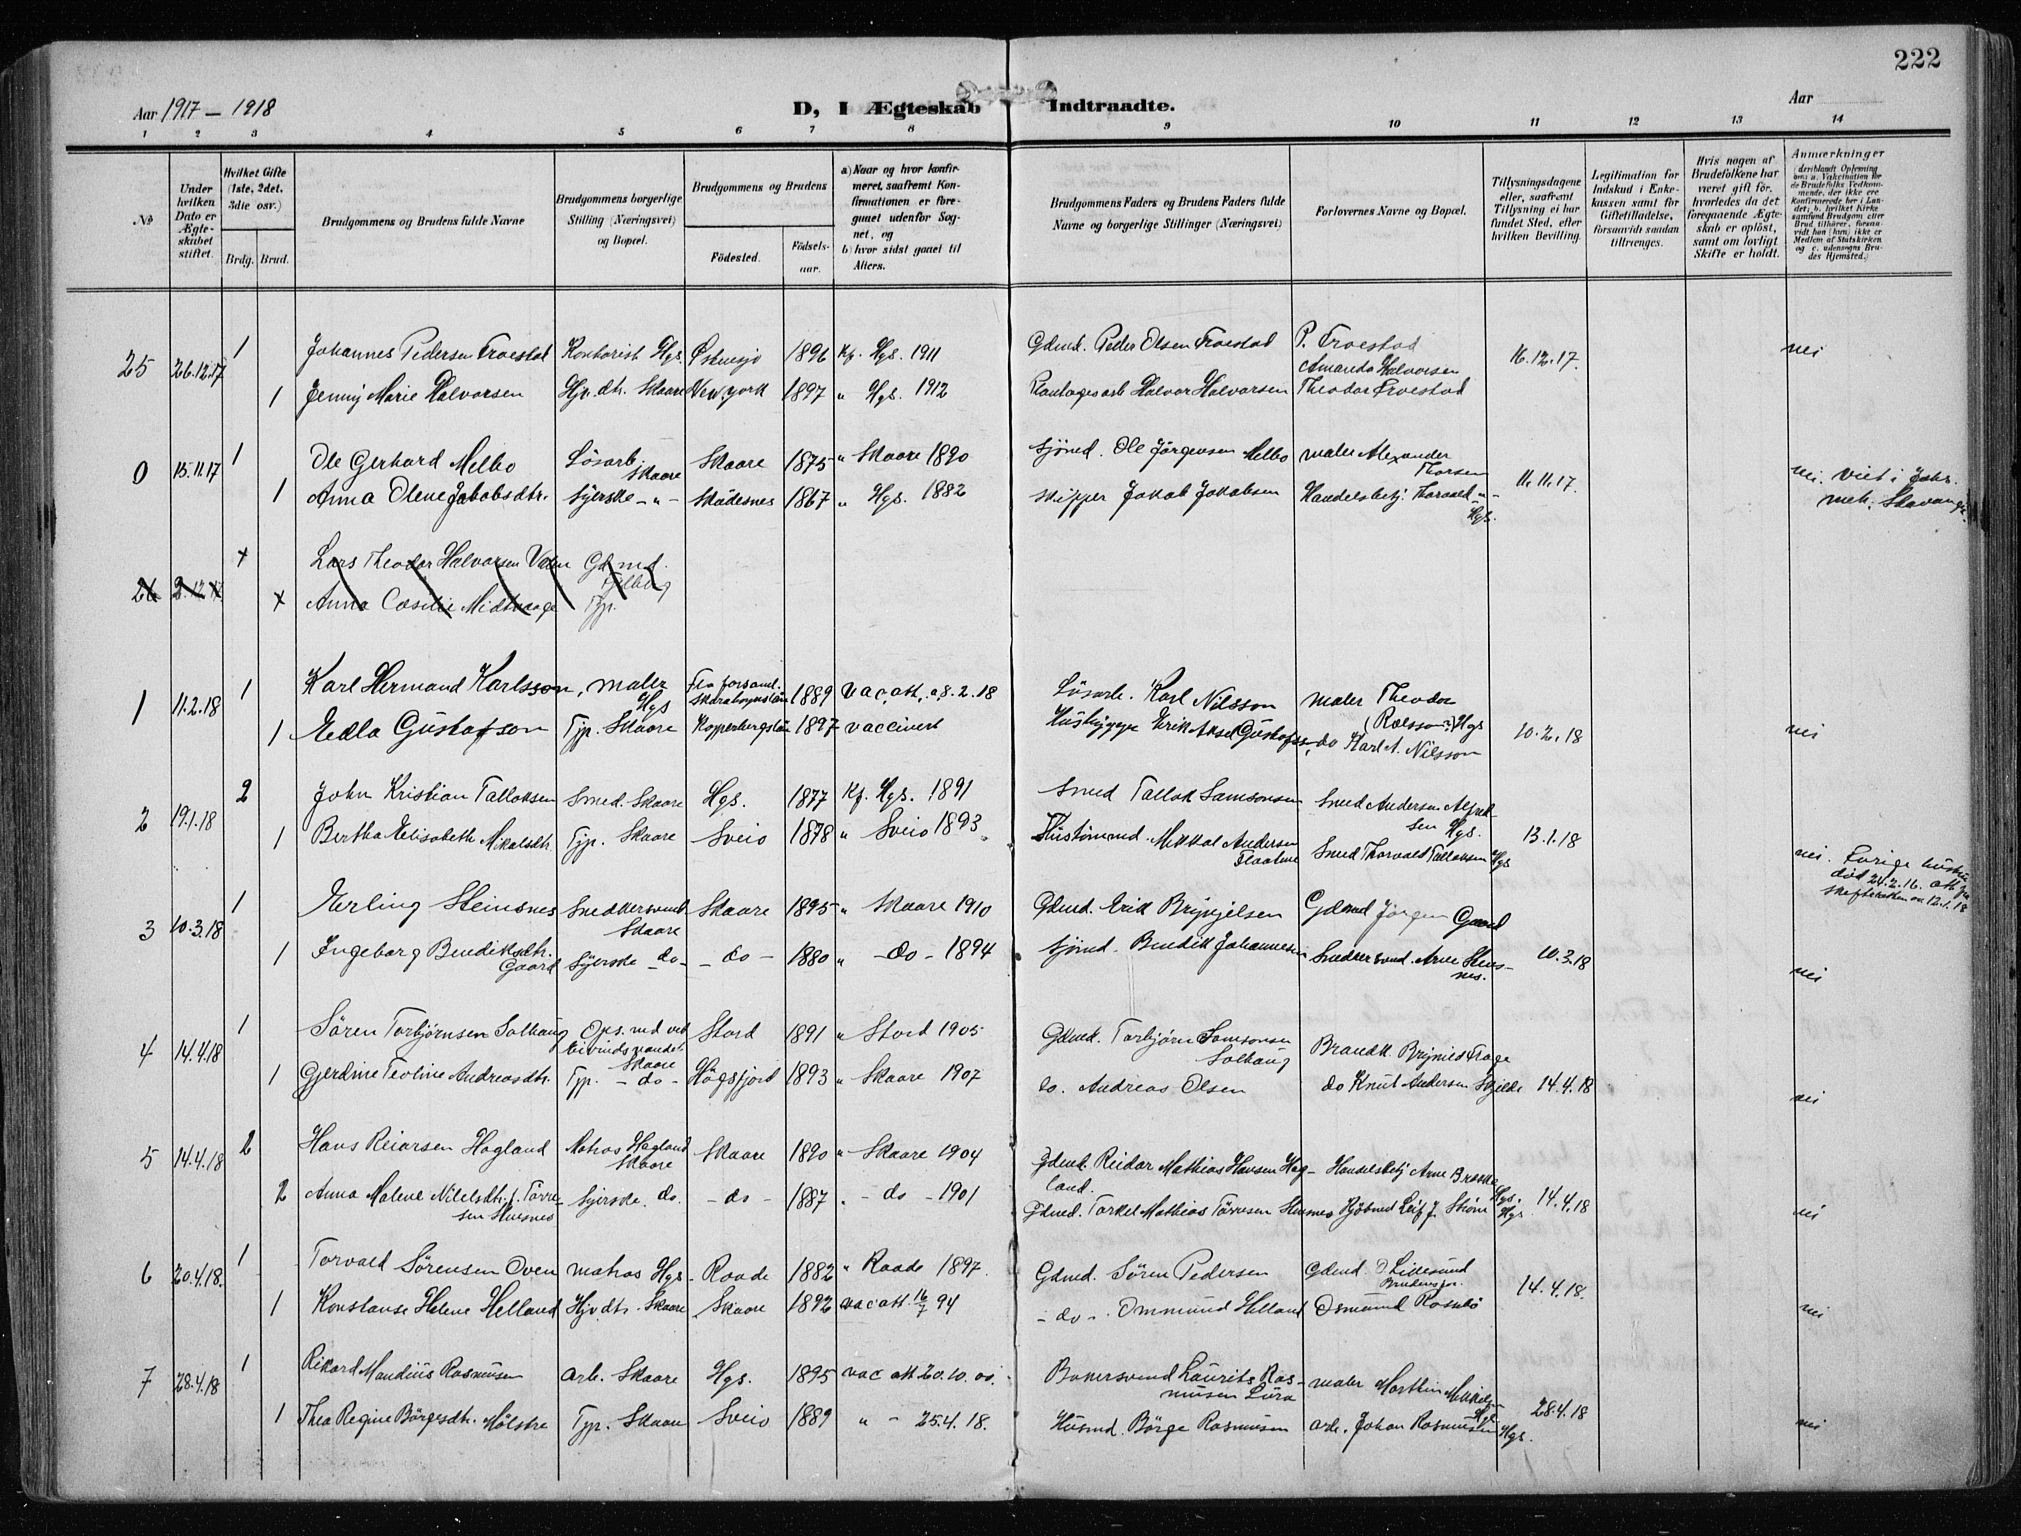 222
Aar 1917 – 1918
D, I Ægteskab Indtraadte.
Aar
1 2 3 4 5 6 7 8 9 10 11 12 13 14
No
Under hvilken Dato er Ægteskabet stiftet.
Hvilket Gifte (1ste, 2det, 3die osv.)
Brdg. Brud.
Brudgommens og Brudens fulde Navne
Brudgommens borgerlige Stilling (Næringsvei) og Bopæl.
Brudgommens og Brudens
Fødested.
Fødselsaar.
a) Naar og hvor konfirmeret, saafremt Konfirmationen er foregaaet udenfor Sognet, og
b) hvor sidst gaaet til Alters.
Brudgommens Faders og Brudens Faders fulde Navne og borgerlige Stillinger (Næringsvei)
Forlovernes Navne og Bopæl.
Tillysningsdagene eller, saafremt Tillysning ei har fundet Sted, efter hvilken Bevilling.
Legitimation for Indskud i Enkekassen samt for Giftetilladelse, forsaavidt saadan tiltrænges.
Hvis nogen af Brudefolkene har været gift før, hvorledes da det foregaaende Ægteskab er opløst, samt om lovligt Skifte er holdt.
Anmærkninger
25 26.12.17 1 Johannes Pedersen Troestad Kontorist Hgs. 1896 Kf. Hgs. 1911 Gdmd. Peder Olsen Troestad P. Troestad 16.12.17. nei
Amanda Halvorsen
1 Jenny Marie Halvorsen Hjv.dtr. Skaare New-york 1897 " Hgs. 1912 Halvor Halvorsen Theodor Troestad
0 15.11.17 1 Ole Gerhard Melbo Løsarb. Skaare Skaare 1875 " Skaare 1890 Sjømd. Ole Jørgensen Melbo maler Alexander Thorsen 11.11.17. nei. viet i
1 Anna Olene Jakobsdtr. Syerske - " - 1867 " Hgs. 1882 skipper Jakob Jakobsen Handelsbetj. Thorvald - " - Hgs. Stavanger.
26 2.12.17 x Lars Theodor Halvorsen Gdmd.
x Anna Cæsilie Typ.
1 11.2.18 1 Karl Hermand Karlsson, maler Hgs 1889 vac. att. 8.2.18 Løsarb. Karl Nilsson maler Theodor
1 Edla Gustafson Typ. Skaare Kopperbergslän 1897 vaccinert Erik Aksel Gustafss. do Karl A. Nilsson 10.2.18 nei
2 19.1.18 2 John Kristian Talloksen Smed. Skaare Hgs. 1877 Kf. Hgs. 1891 Smed Tallak Samsonsen Smed Andersen Hgs.
1 Bertha Elisabeth Mikalsdtr. Typ. Skaare Sveio 1878 " Sveio 1893 Mikkal Andersen Smed Thorvald Talloksen Hgs 13.1.18 nei. død 24.2.16.
3 10.3.18 1 Erling Steinsnes Snedkersvend Skaare Skaare 1895 " Skaare 1910 Gdmd. Erik Brynjelsen Gdmd Jørgen Gaard
1 Ingeborg Bendiksdtr. Gaard Syerske - do - - do - 1880 " - do - 1894 Sjømd. Bendik Johannesen Snedkersvend. Arne Stensnes. 10.3.18 nei
4 14.4.18 1 Søren Torbjørnsen Solhaug Skaare Stord 1891 " Stord 1905 Gdmd. Torbjørn Samsonsen Solhaug
1 Gjerdine Teoline Andreasdtr. Typ. - do - Høgsfjord 1893 " Skaare 1907 do. Andreas Olsen do Knut Andersen 14.4.18 nei
5 14.4.18 2 Hans Reiarsen Hagland Matros Hagland Skaare Skaare 1890 " Skaare 1904 Gdmd. Reidar Mathias Hansen Hagland. Handelsbetj Arne Hgs.
2 Anna Malene Syerske. do. - do - 1887 " - do - 1901 Gdmd. Torkel Mathias Tørresen Leif J. Hgs 14.4.18 nei
6 20.4.18. 1 Torvald Sørensen Oven matros Hgs. Raade 1882 " Raade 1897. Gdmd. Søren Pedersen Gdmd. O Lillesund 14.4.18.
1 Konstanse Helene Helland Hjvdtr. Skaare Skaare 1892 vac att 16/7 94 - do - Ommund Helland Osmund nei
7 28.4.18 1 Rikard Mandius Rasmusen arb. Skaare Hgs. 1895 vac att 20.10.00. Bakersvend Laurits Rasmusen Lura maler Hgs
1 Thea Regine Børgesdtr. Typ. Skaare Sveio 1889 " - 25.4.18. Husmd. Børge Rasmusen arb. Johan Rasmusen Hgs. 28.4.18 nei